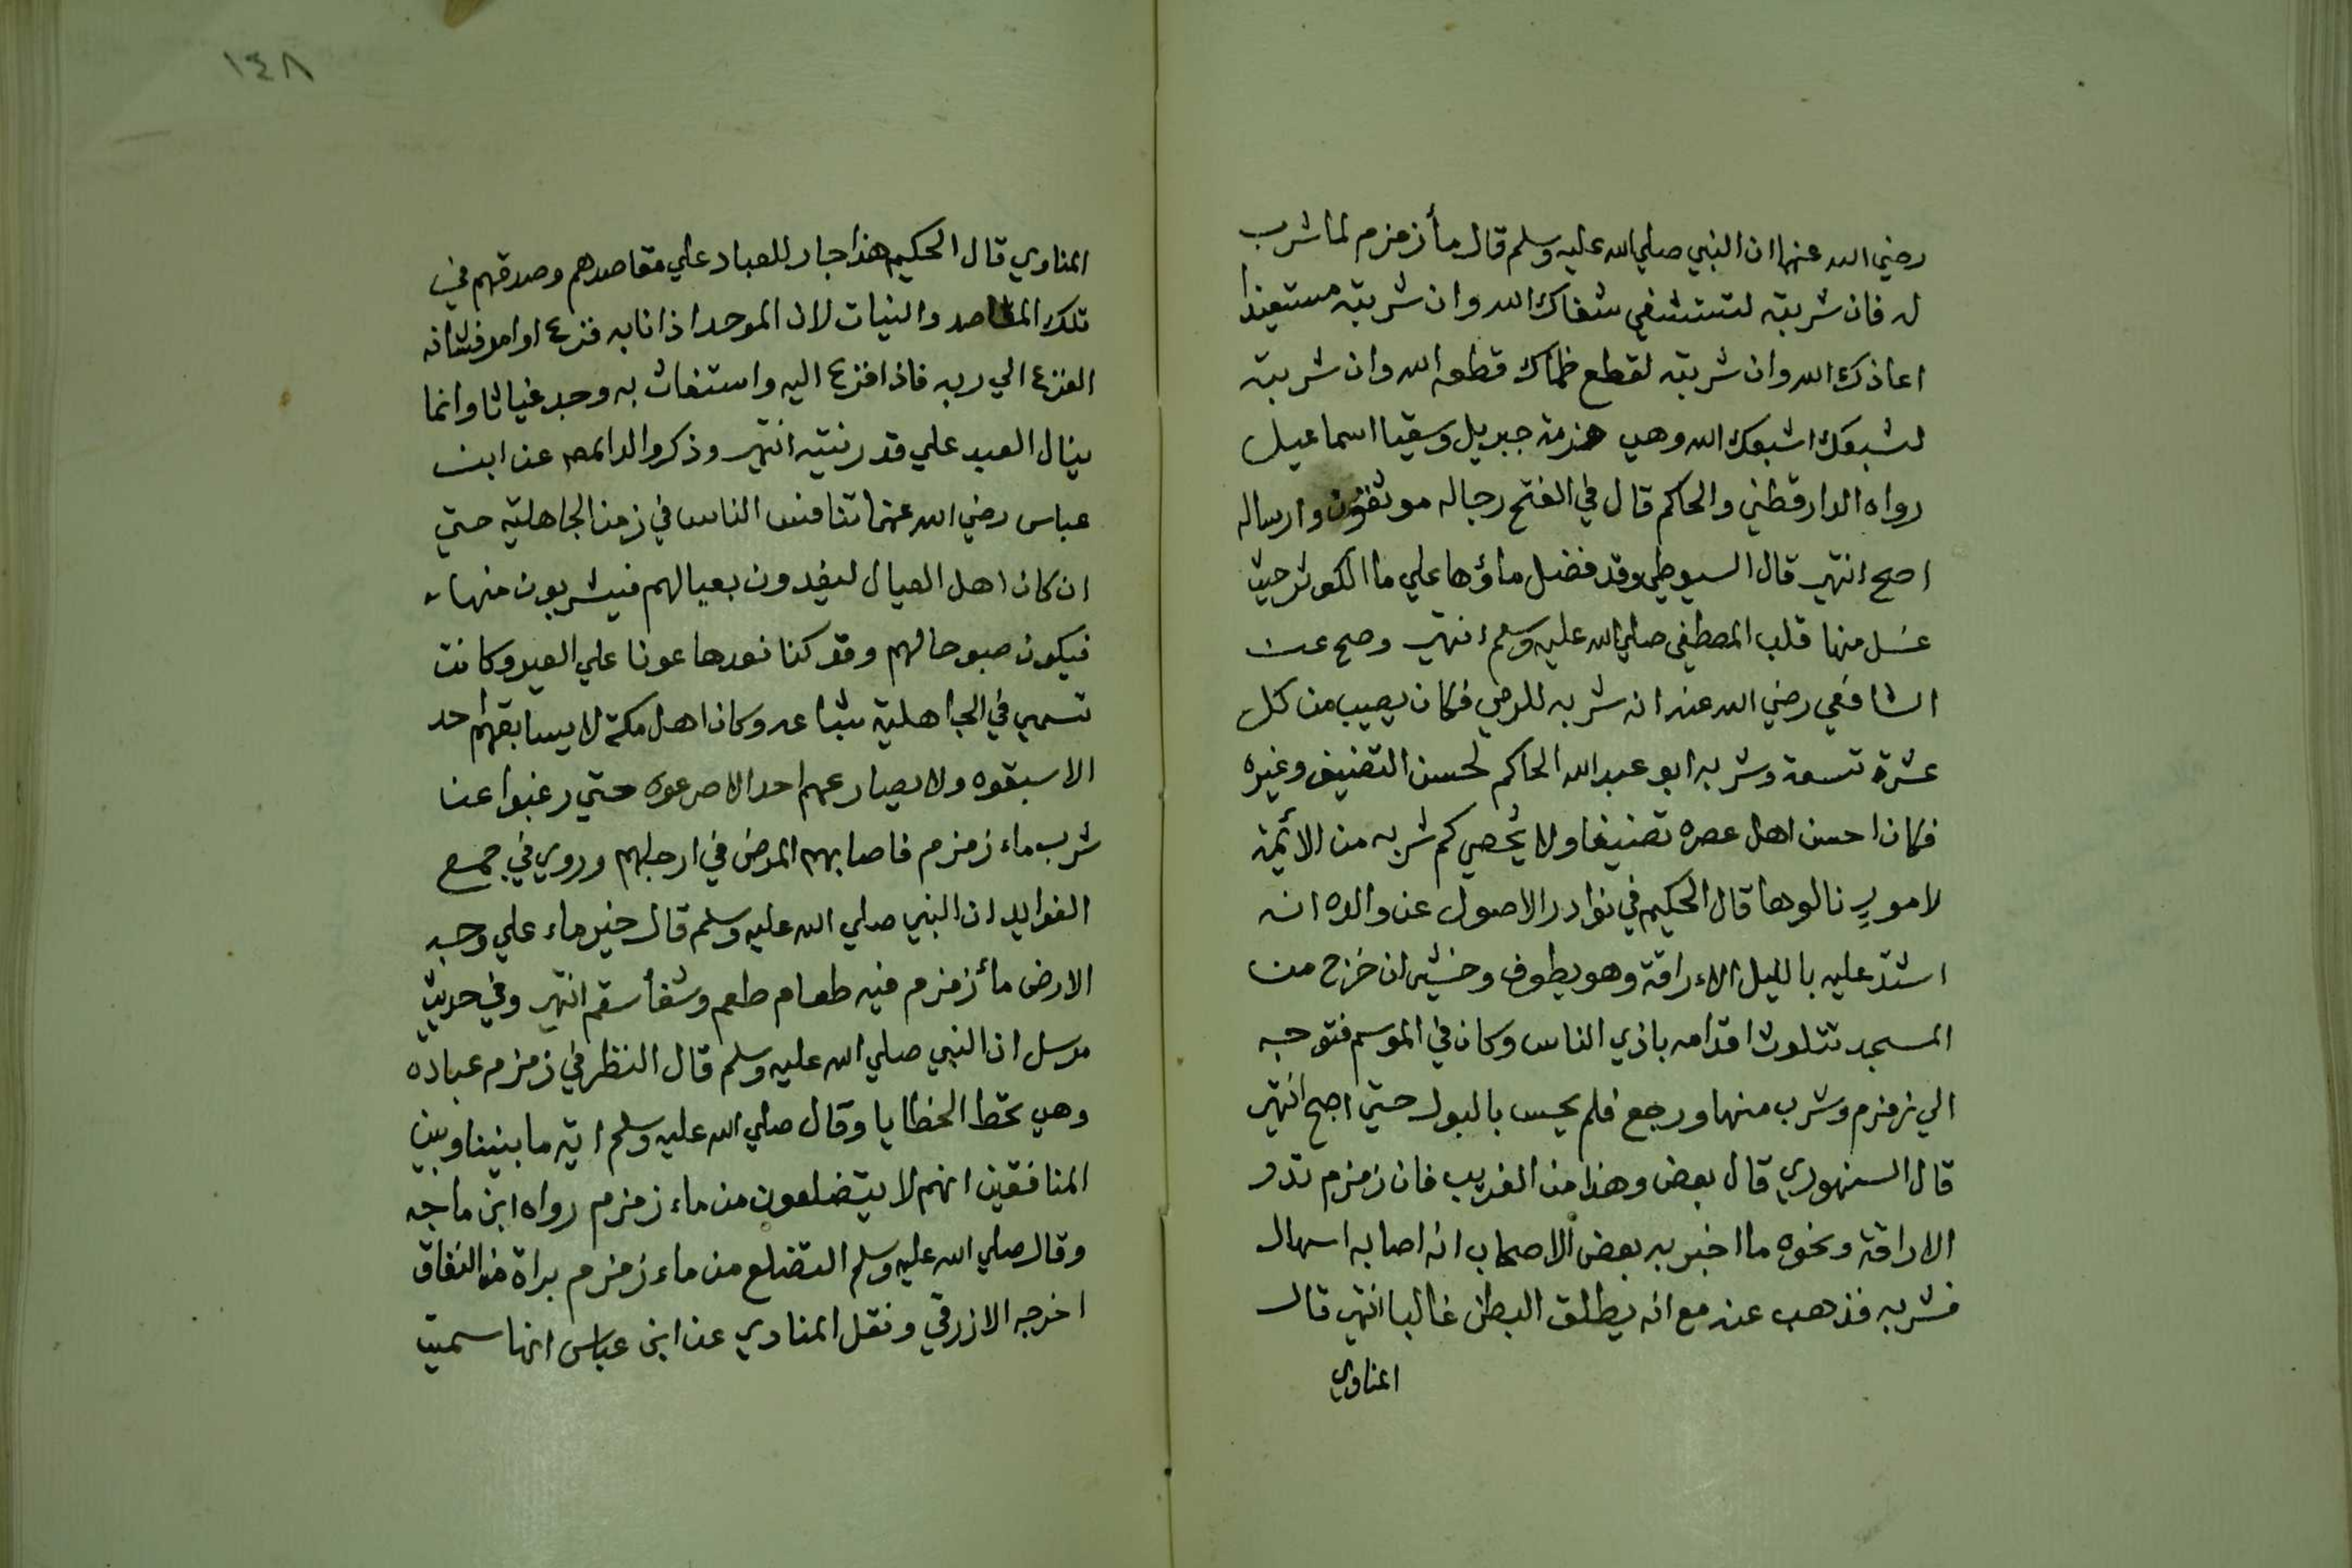 رضي الله عنهما ان النبي صلي الله عليه وسلم قال مأ زمزم لما شرب
له فان شربته لتستشفي شفاك الله وان شربته مستعيذا
اعاذك الله وان شربته لقطع ظماك قطعه الله وان شربته
لشبعك اشبعك الله وهي هزمة جبريل وسقيا اسماعيل
رواه الدارقطني والحاكم قال في الفتح رجاله موثقون وارساله
اصح انتهى قال السيوطي وقد فضل ماؤها علي ما الكوثر حيث
غسل منها قلب المصطفى صلي الله عليه وسلم انتهى وصح عن
الشافعي رضي الله عنه انه شربه للرمي فكان يصيب من كل
عشرة تسعة وشربه ابو عبد الله الحاكم لحسن التصنيف وغيره
فكان احسن اهل عصره تصنيفا ولا يُحصي كم شربه من الأئمة
لامور نالوها قال الحكيم في نوادر الاصول عن والده انه
اشتد عليه بالليل الاراقة وهو يطوف وخشي ان خرج من
المسجد تتلوث اقدامه باذي الناس وكان في الموسم فتوجه
الي زمزم وشرب منها ورجع فلم يحس بالبول حتي اصبح انتهى
قال السنهوري قال بعض وهذا من الغريب فان زمزم تدر
الاراقة ونحوه ما اخبر به بعض الاصحاب انه اصابه اسهال
فشربه فذهب عنه مع انه يطلق البطن غالبا انتهى قال
المناوي
١٤٨
المناوي قال الحكيم هذا جار للعباد علي مقاصدهم وصدقهم في
تلك المقاصد والنيات لان الموحد اذا نابه فزع او امر فشانه
الفزع الي ربه فاذا فزع اليه واستغاث به وجد غياثا وانما
ينال العبد علي قدر نيته انتهى وذكر عن ابن
عباس رضي الله عنهما تنافس الناس في زمن الجاهلية حتي
ان كان اهل العيال ليفدون بعيالهم فيشربون منها
فيكون صبوحا لهم وقد كنا نعدها عونا علي العيد وكانت
تسمى في الجاهلية شباعه وكان اهل مكة لا يسابقهم احد
الا سبقوه ولا يصارعهم احد الا صرعوه حتي رغبوا عن
شرب ماء زمزم فاصابهم المرض في ارجلهم وروي في جمع
الفوايد ان النبي صلي الله عليه وسلم قال خير ماء علي وجه
الارض مأ زمزم فيه طعام طعم وشفأ سقم انتهى وفي حديث
مرسل ان النبي صلي الله عليه وسلم قال النظر في زمزم عباده
وهي تحط الخطايا وقال صلي الله عليه وسلم اية ما بيننا وبين
المنافقين انهم لا يتضلعون من ماء زمزم رواه ابن ماجه
وقال صلي الله عليه وسلم التضلع من ماء زمزم براة من النفاق
اخرجه الازرقي ونقل المناوي عن ابن عباس انها سميت